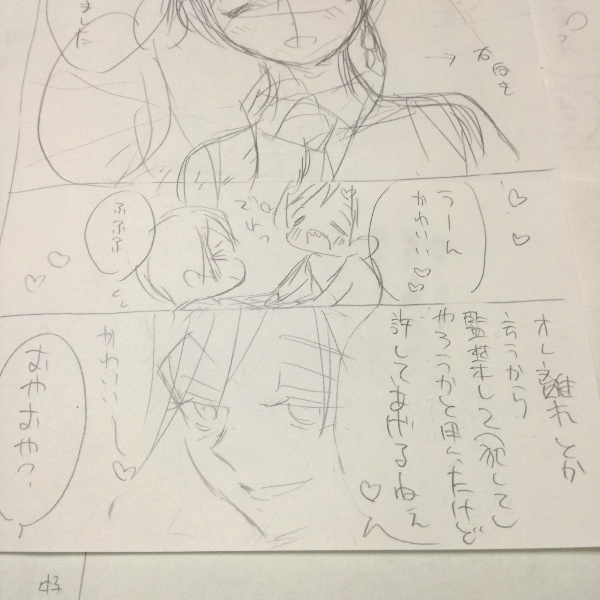 ました
うーん
かわいい♡♡
でれっ
ふふふ
オレ離れとか
言うから
監禁して(犯して)
やろうかと思ったけど
許してあげるねぇ
♡
かわいいし♡
おやおや?